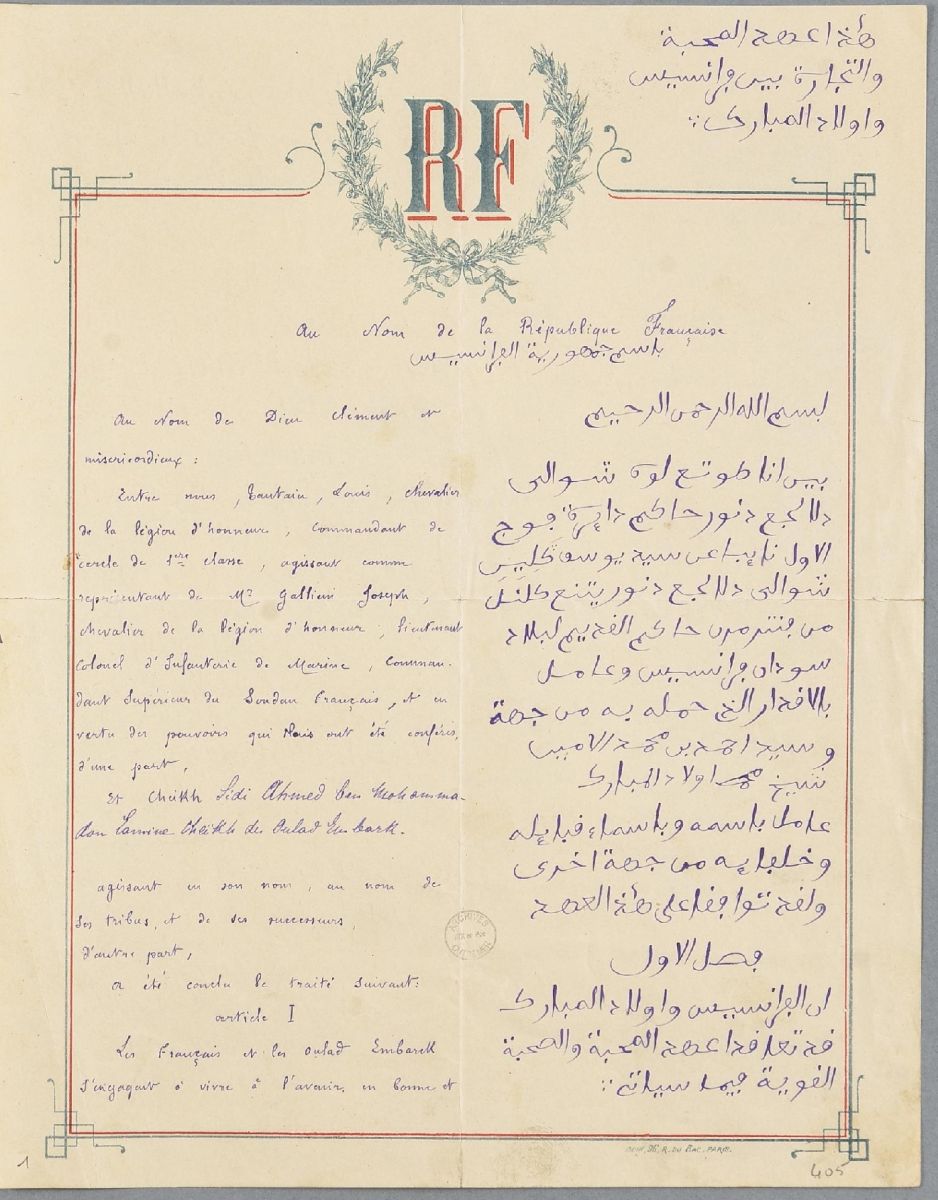 هذا عهد المحبة
والتجارة بين فرانسيس
واولاد المبارك
RF
Au Nom de la République Française
باسم جمهورية الفرانسيس
Au Nom de Dieu clément et
miséricordieux :
Entre nous, Tautain, Louis, chevalier
de la légion d'honneur, Commandant de
cercle de 1ère classe, agissant comme
représentant de Mr Gallieni Joseph,
chevalier de la légion d'honneur, lieutenant
Colonel d'Infanterie de Marine, Comman-
dant Supérieur du Soudan Français, et en
vertu des pouvoirs qui Nous ont été conférés,
d'une part,
Et Cheikh Sidi Ahmed ben Mohamma-
dou Lamine Cheikh des Oulad Embark.
agissant en son nom, au nom de
ses tribus, et de ses successeurs,
d'autre part,
a été conclu le traité suivant:
article I
Les Français et les Oulad Embarek
s'engagent à vivre à l'avenir en bonne et
بسم الله الرحمن الرحيم
بين انا طوتن لوي شوالى
دلالجع دنور حاكم دايرة
الاول نايبا عن سيد يوسف
شوالى دلالجع دنور
حاكم القديم لبلاد
سودان فرانسيس وعامل
بالاقدار الذي حمله به من جهة
وسيد احمد بن محمد الامين
شيخ اولاد المبارك
عامل باسمه وباسماء قبايله
وخلفايه من جهة اخرى
ولقد توافقا على هذا العهد
فصل الاول
ان الفرانسيس واولاد المبارك
قد تعاقدا عهد المحبة والصحبة
القوية فيما سياتي
ARCHIVES
36, R. DU BAC, PARIS.
1
405